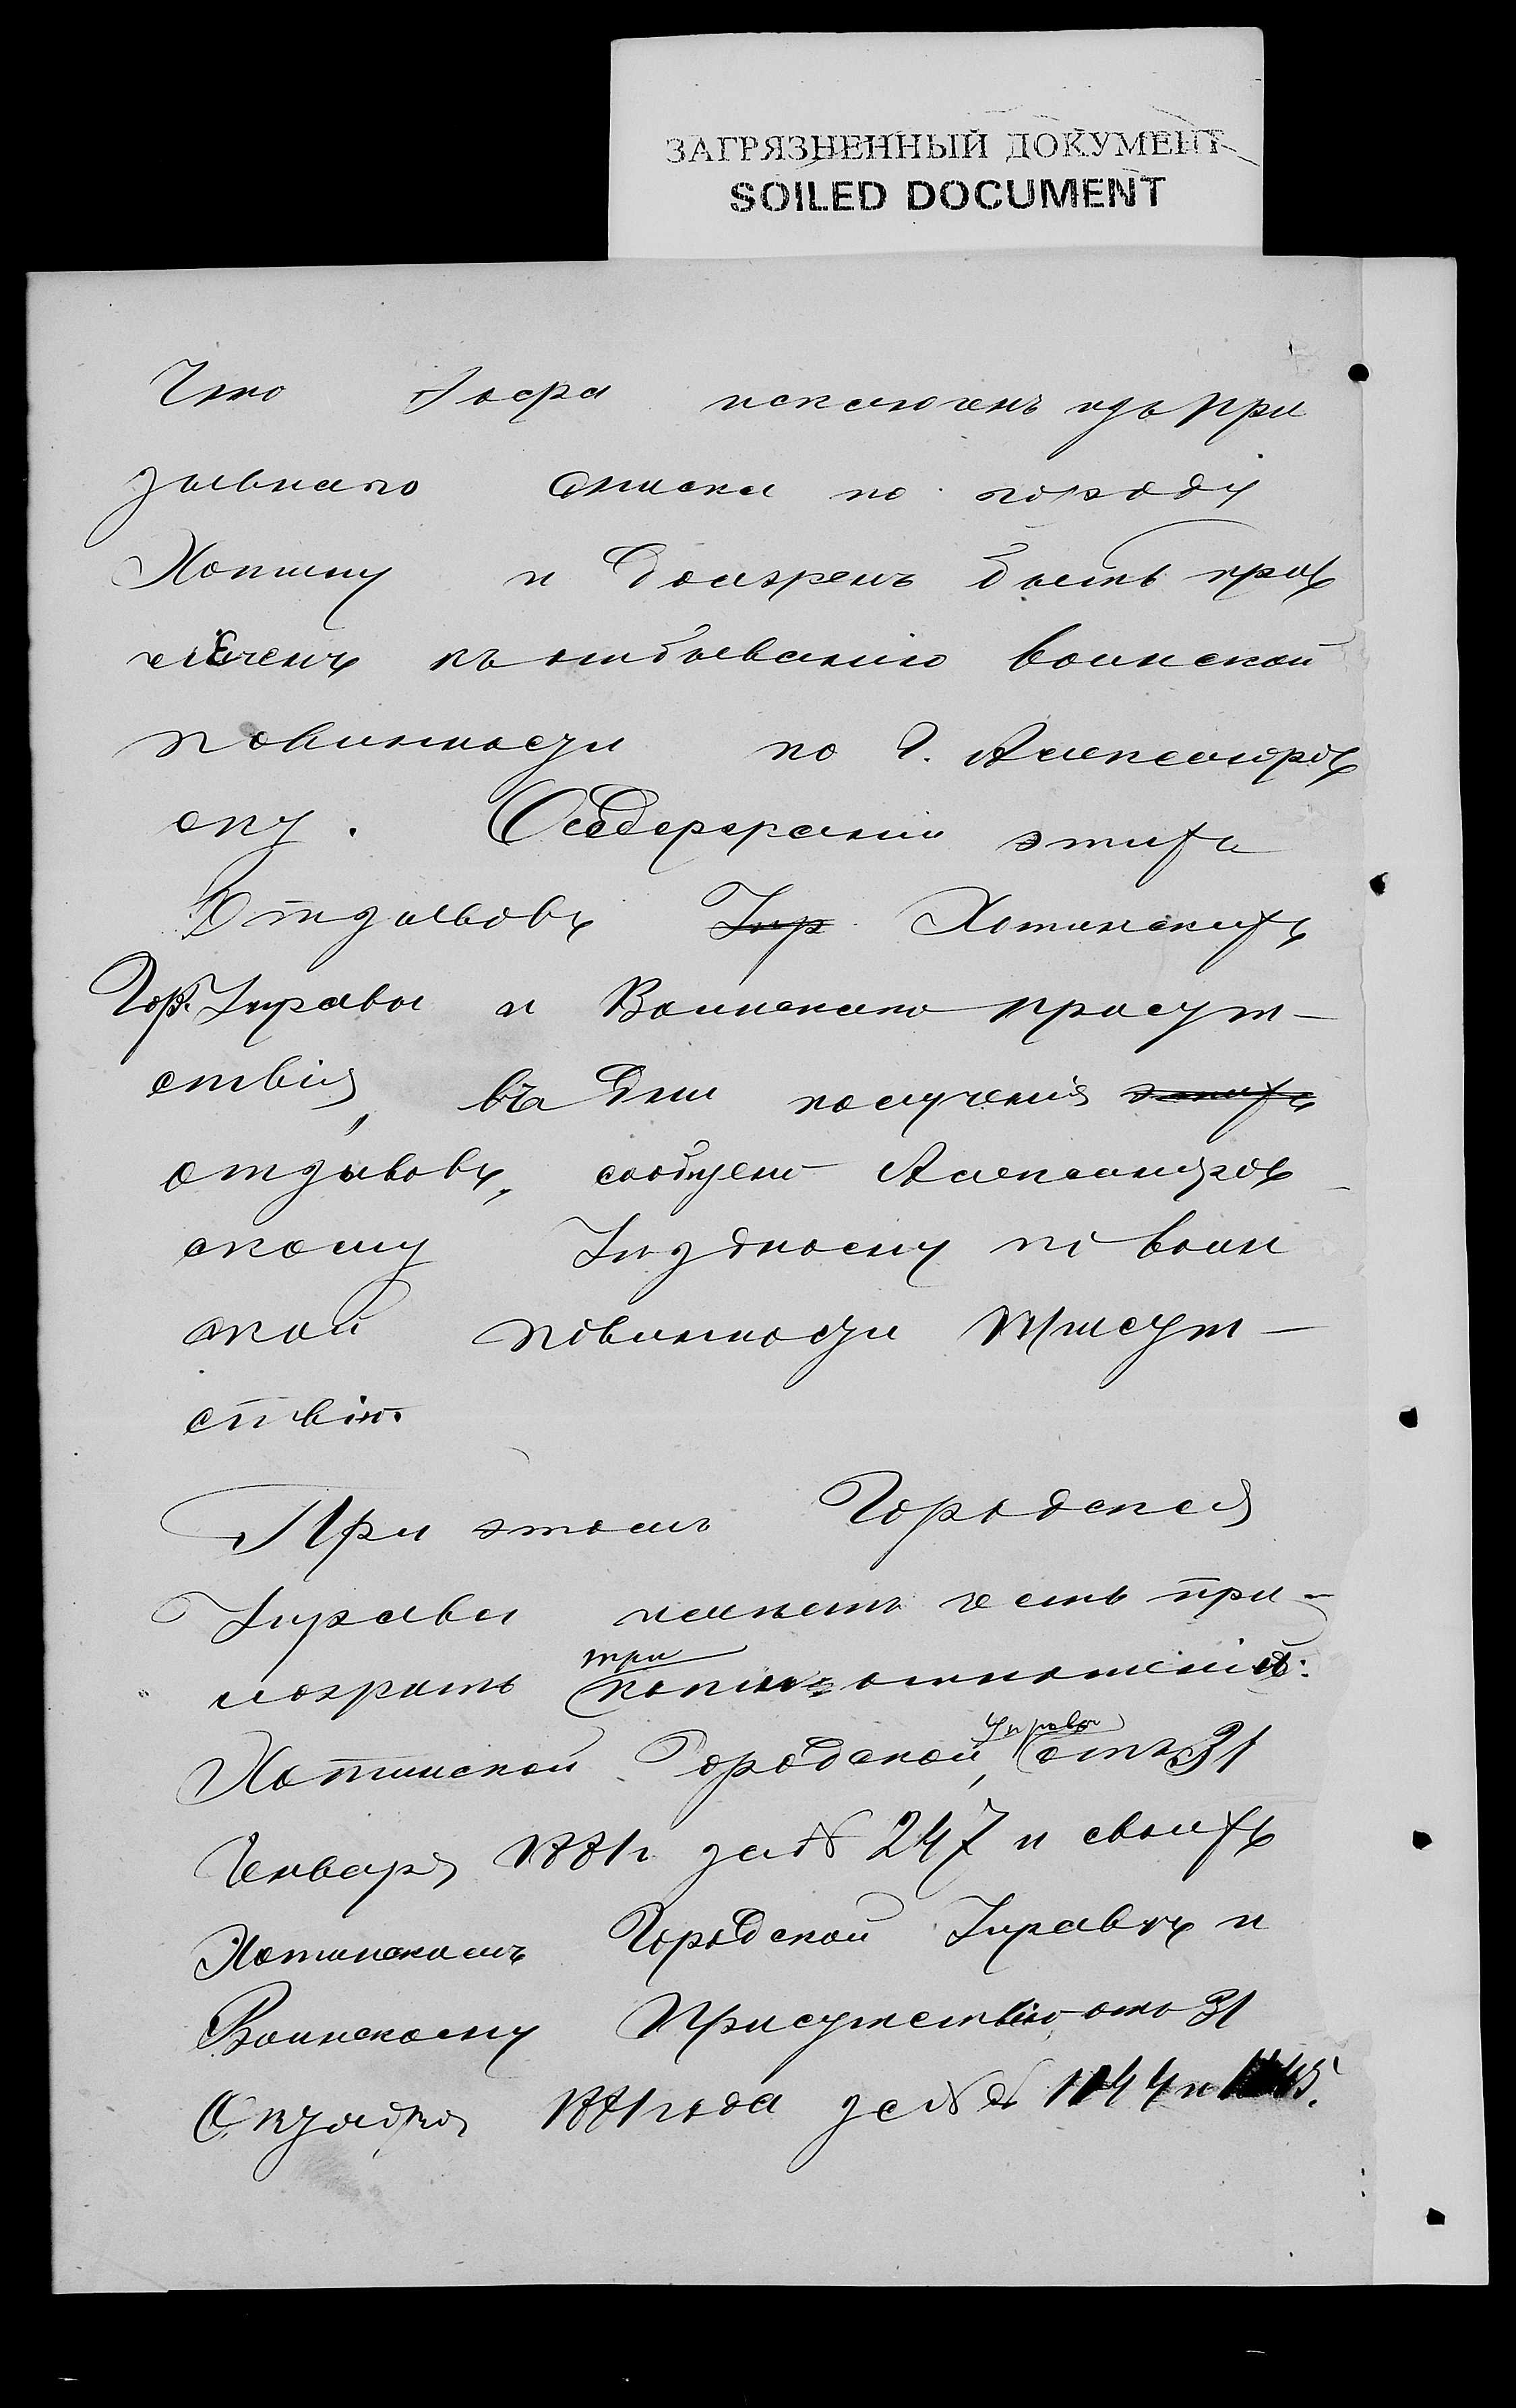 ЗАГРЯЗНЕННЫЙ ДОКУМЕНТ
SOILED DOCUMENT
Что исключенъ изъ при
зывнаго списка по городу
Хотину и долженъ быть прив
леченъ къ отбыванію воинской
повинности по г. Александров
ску. О содержаніи этихъ
Отзывовъ Упр Хотинскихъ
Гор. Управы и Воинскаго присут-
ствія, въ дни полученія этихъ
отзывовъ, сообщено Александров-
скому Уѣздному по воин
ской повинности присут-
ствію.
При этомъ Городская
Управа имѣетъ честь при-
ложить три копіи отношенія:
Хотинской Городской Управы, отъ 31
Генваря 1881 г. за № 247 и своихъ
Хотинскимъ Городской Управѣ и
Воинскому Присутствію отъ 31
Октября 1881 года за №№ 1144 и 1145.